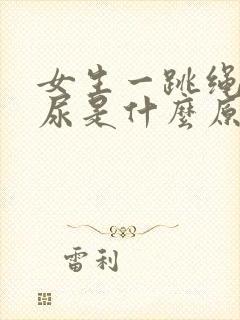 女生一跳绳
尿是什麼原
雷利